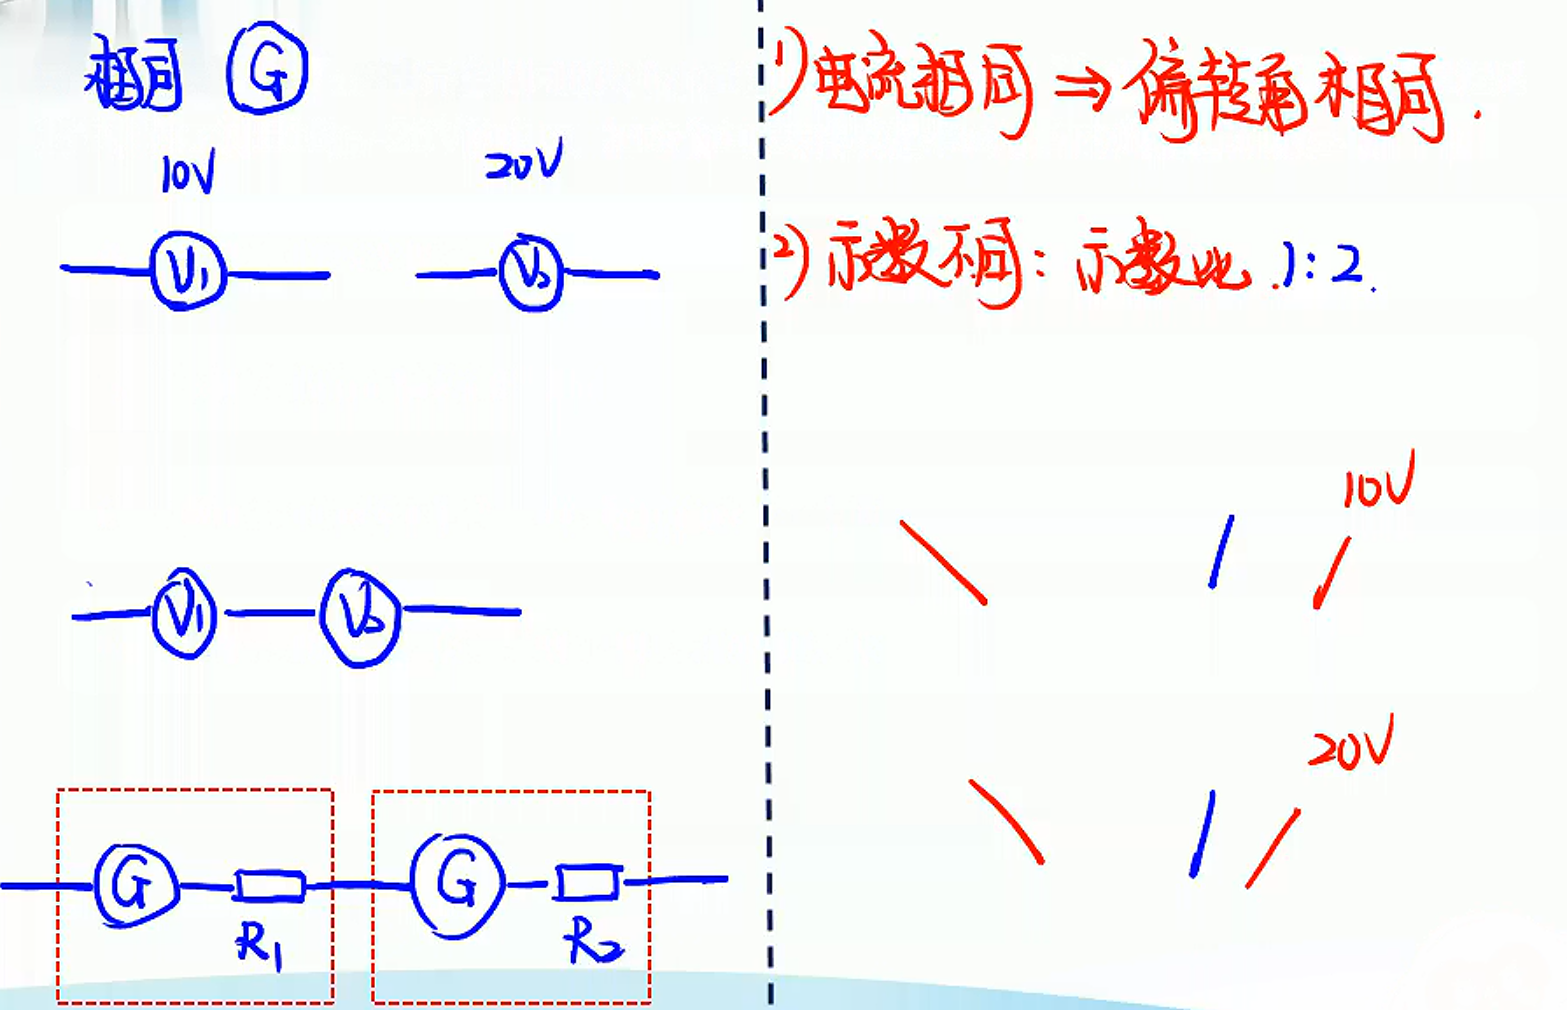 相同 G
10V 20V
V₁ V₂
V₁ V₂
G R₁ G R₂
1) 电流相同 ⇒ 偏转角相同.
2) 示数不同: 示数比 1:2.
10V
20V